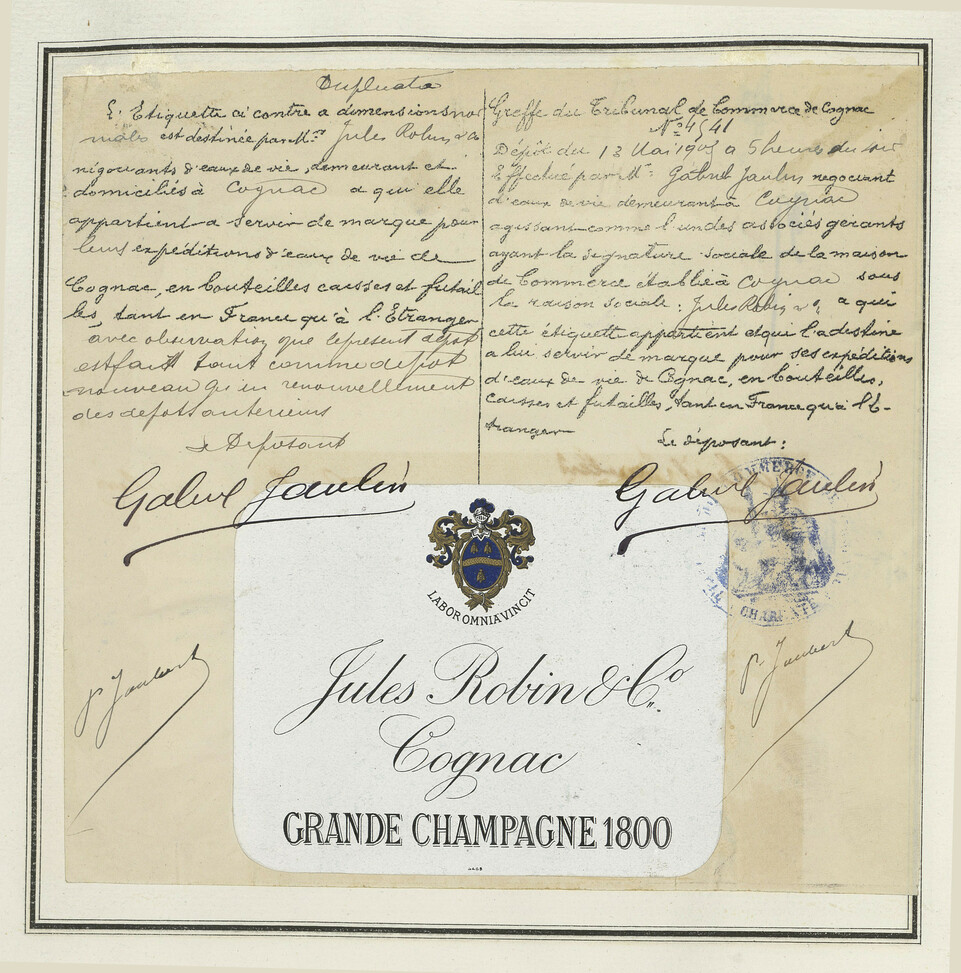 Duplicata
L'Etiquette ci contre a dimensions nor
males est destinée par M.rs Jules Robin & Co
négociants d'eaux de vie, demeurant et
domiciliés à Cognac a qui elle
appartient a servir de marque pour
leurs expéditions d'eaux de vie de
Cognac, en bouteilles caisses et futail
les, tant en France qu'à l'Etranger
avec observation que le present dépot
est fait tant comme depot
nouveau qu'en renouvellement
des depots anterieurs
Le Deposant
Gabriel Jaulin
Greffe du Tribunal de Commerce de Cognac
N° 4541
Dépôt du 13 Mai 1905 a 5 heures du soir
Effectué par M. Gabriel Jaulin négociant
d'eaux de vie demeurant à Cognac
agissant comme l'un des associés gérants
ayant la signature sociale de la maison
de Commerce établie à Cognac sous
la raison sociale : Jules Robin & Co a qui
cette étiquette appartient et qui l'a destine
a lui servir de marque pour ses expéditions
d'eaux de vie de Cognac, en bouteilles,
caisses et futailles, tant en France qu'à l'E-
tranger
Le déposant :
Gabriel Jaulin
COMMERCE
CHARENTE
LABOR OMNIA VINCIT
Jules Robin & Co.
Cognac
GRANDE CHAMPAGNE 1800